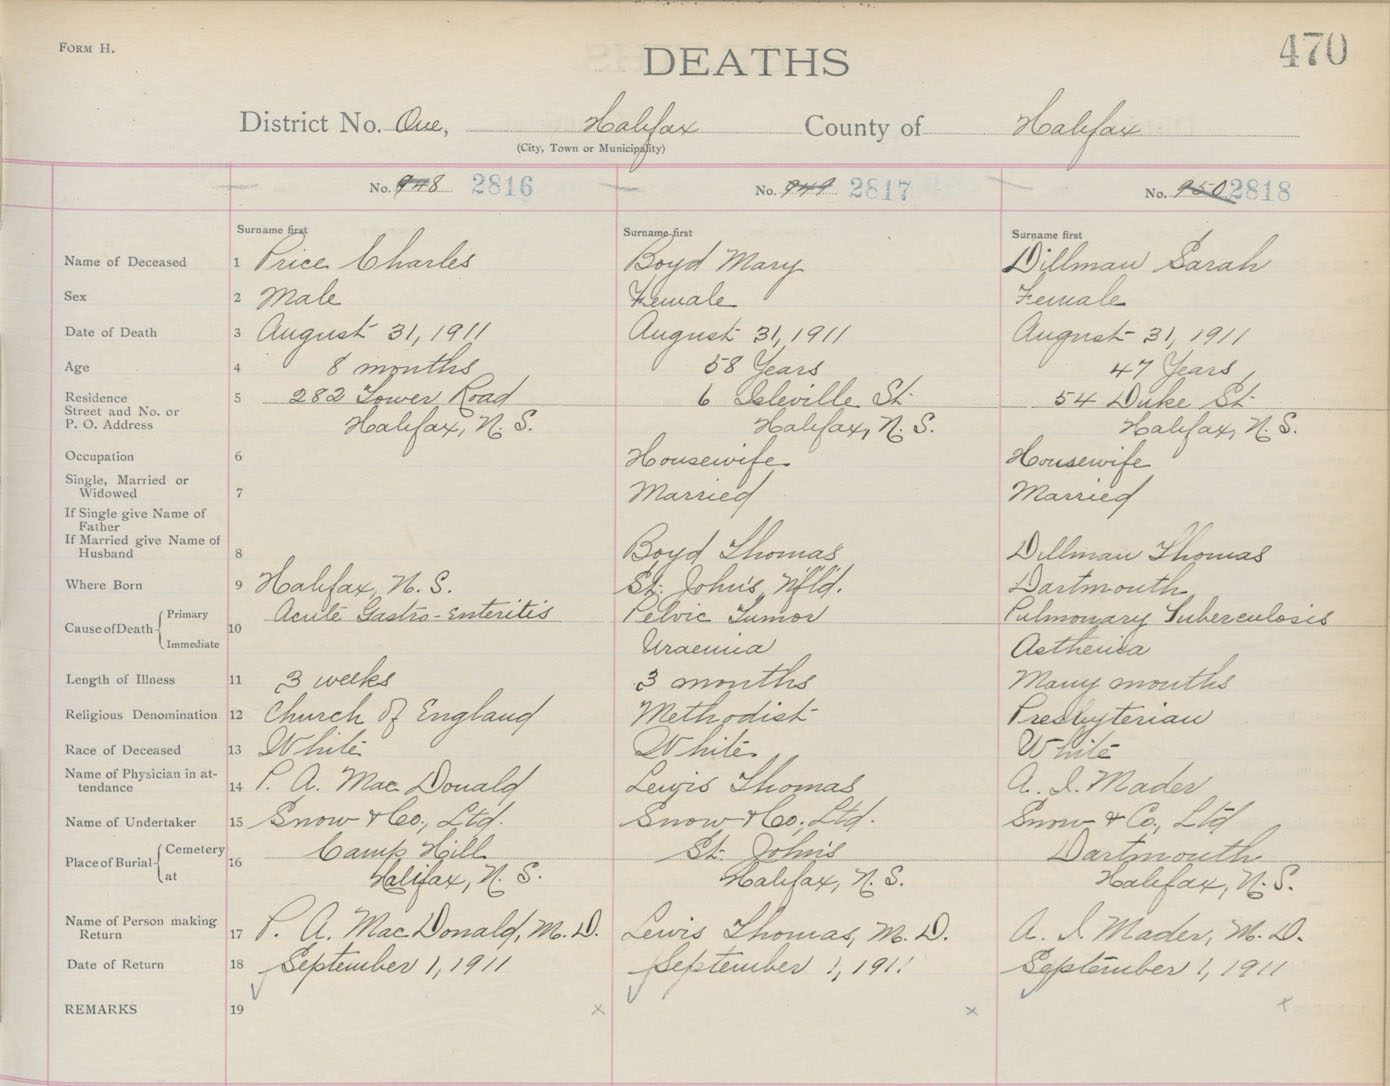 FORM H.
DEATHS
470
District No. One, Halifax County of Halifax
(City, Town or Municipality)
No. 948 2816 No. 949 2817 No. 950 2818
Surname first Surname first Surname first
Name of Deceased 1 Price Charles Boyd Mary Dillman Sarah
Sex 2 Male Female Female
Date of Death 3 August 31, 1911 August 31, 1911 August 31, 1911
Age 4 8 months 58 Years 47 Years
Residence 5 282 Tower Road 6 Isleville St. 54 Duke St.
Street and No. or
P. O. Address Halifax, N. S. Halifax, N. S. Halifax, N. S.
Occupation 6 Housewife Housewife
Single, Married or
Widowed 7 Married Married
If Single give Name of
Father
If Married give Name of
Husband 8 Boyd Thomas Dillman Thomas
Where Born 9 Halifax, N. S. St. John's, Nfld. Dartmouth
Cause of Death Primary 10 Acute Gastro-Enteritis Pelvic Tumor Pulmonary Tuberculosis
Immediate Uraemia Asthenia
Length of Illness 11 3 weeks 3 months Many months
Religious Denomination 12 Church of England Methodist Presbyterian
Race of Deceased 13 White White White
Name of Physician in at-
tendance 14 P. A. MacDonald Lewis Thomas A. I. Mader
Name of Undertaker 15 Snow & Co., Ltd. Snow & Co., Ltd. Snow & Co., Ltd
Place of Burial Cemetery 16 Camp Hill St. John's Dartmouth
at Halifax, N. S. Halifax, N. S. Halifax, N. S.
Name of Person making
Return 17 P. A. MacDonald, M. D. Lewis Thomas, M. D. A. I. Mader, M. D.
Date of Return 18 September 1, 1911 September 1, 1911 September 1, 1911
REMARKS 19 x x x